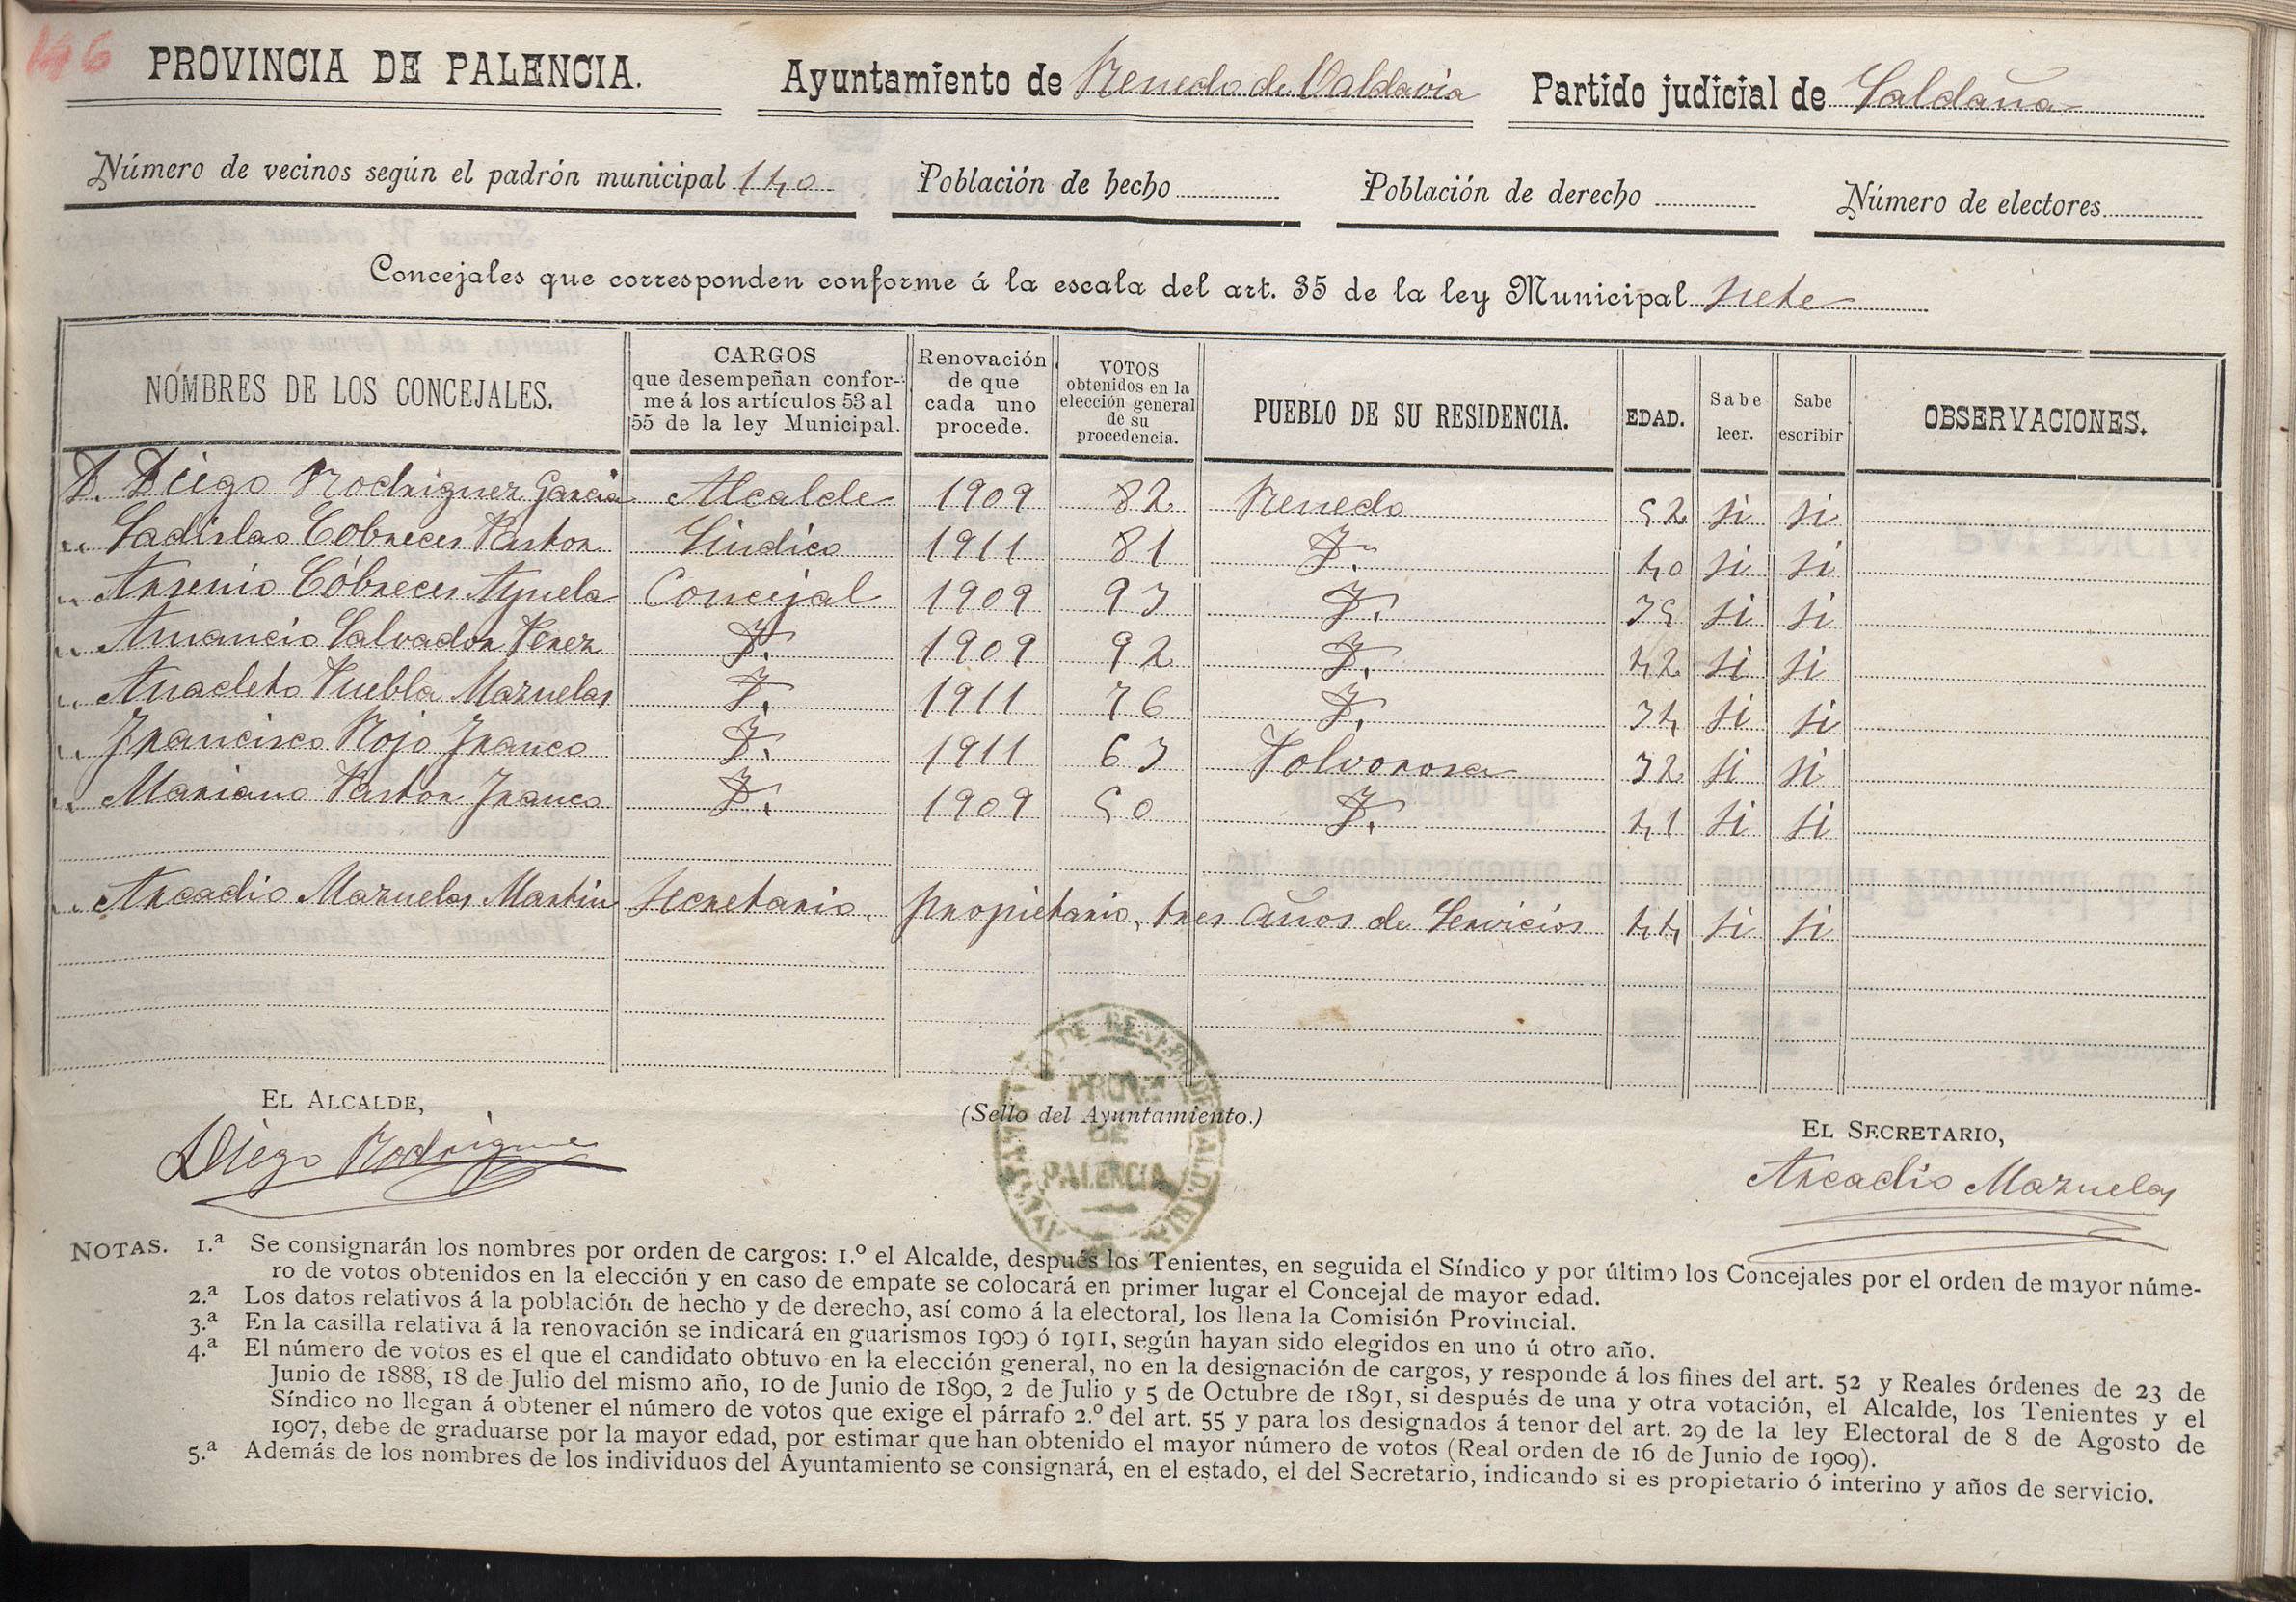 146
PROVINCIA DE PALENCIA. Ayuntamiento de Renedo de Valdavia Partido judicial de Saldaña
Número de vecinos según el padrón municipal 140 Población de hecho Población de derecho Número de electores
Concejales que corresponden conforme á la escala del art. 35 de la ley Municipal siete
NOMBRES DE LOS CONCEJALES. CARGOS que desempeñan conforme á los artículos 53 al 55 de la ley Municipal. Renovación de que cada uno procede. VOTOS obtenidos en la elección general de su procedencia. PUEBLO DE SU RESIDENCIA. EDAD. Sabe leer. Sabe escribir OBSERVACIONES.
D. Diego Rodriguez Garcia Alcalde 1909 82 Renedo 52 si si
" Ladislao Cobreces Pastor Sindico 1911 81 I. 40 si si
" Arsenio Cóbreces Ayuela Concejal 1909 93 I. 35 si si
" Amancio Salvador Perez I. 1909 92 I. 42 si si
" Anacleto Puebla Mazuelas I. 1911 76 I. 34 si si
" Francisco Rojo Franco I. 1911 63 Polvorosa 32 si si
" Mariano Pastor Franco I. 1909 50 I. 41 si si
" Arcadio Mazuelas Martin Secretario, propietario, tres años de Servicios 44 si si
EL ALCALDE,
Diego Rodrigue
(Sello del Ayuntamiento.)
PROVA
DE
PALENCIA
EL SECRETARIO,
Arcadio Mazuelas
NOTAS. 1.ª Se consignarán los nombres por orden de cargos: 1.º el Alcalde, después los Tenientes, en seguida el Síndico y por último los Concejales por el orden de mayor núme-
ro de votos obtenidos en la elección y en caso de empate se colocará en primer lugar el Concejal de mayor edad.
2.ª Los datos relativos á la población de hecho y de derecho, así como á la electoral, los llena la Comisión Provincial.
3.ª En la casilla relativa á la renovación se indicará en guarismos 1909 ó 1911, según hayan sido elegidos en uno ú otro año.
4.ª El número de votos es el que el candidato obtuvo en la elección general, no en la designación de cargos, y responde á los fines del art. 52 y Reales órdenes de 23 de
Junio de 1888, 18 de Julio del mismo año, 10 de Junio de 1890, 2 de Julio y 5 de Octubre de 1891, si después de una y otra votación, el Alcalde, los Tenientes y el
Síndico no llegan á obtener el número de votos que exige el párrafo 2.º del art. 55 y para los designados á tenor del art. 29 de la ley Electoral de 8 de Agosto de
1907, debe de graduarse por la mayor edad, por estimar que han obtenido el mayor número de votos (Real orden de 16 de Junio de 1909).
5.ª Además de los nombres de los individuos del Ayuntamiento se consignará, en el estado, el del Secretario, indicando si es propietario ó interino y años de servicio.